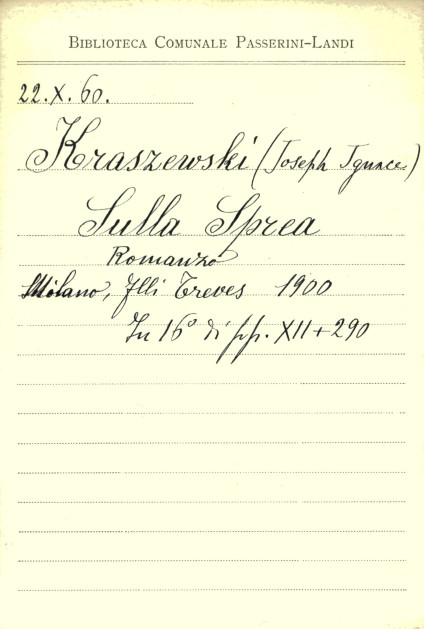 BIBLIOTECA COMUNALE PASSERINI-LANDI
22.X.60.
Kraszewski (Joseph Ignace)
Sulla Sprea
Romanzo
Milano, Flli Treves 1900
In 16° di pp. XII+290